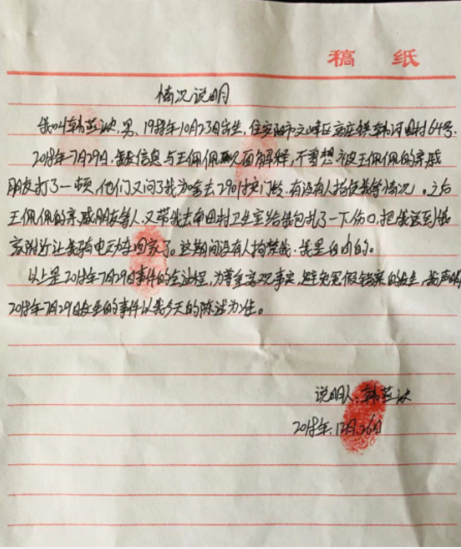 稿 纸
情况说明
我叫韩, 男, 1988年10月23日出生, 住安阳市文峰区宝莲寺镇韩河固村64号.
2018年7月29日.我发信息与王佩佩见面解释, 不曾想被王佩佩的亲戚
朋友打了一顿, 他们又问了我为啥去290付安门, 有没有人指使我等情况. 之后
王佩佩的亲戚朋友等人又带我去田村卫生室给我包扎了一下伤口, 把我送到我
家附近让我骑电动车回家了。这期间没有人拘禁我, 我是自由的。
以上是2018年7月29日事件的全过程, 为尊重客观事实, 避免冤假错案的发生, 我声明
2018年7月29日发生的事件以我今天的陈述为准。
说明人: 韩
2018年.12月.26日